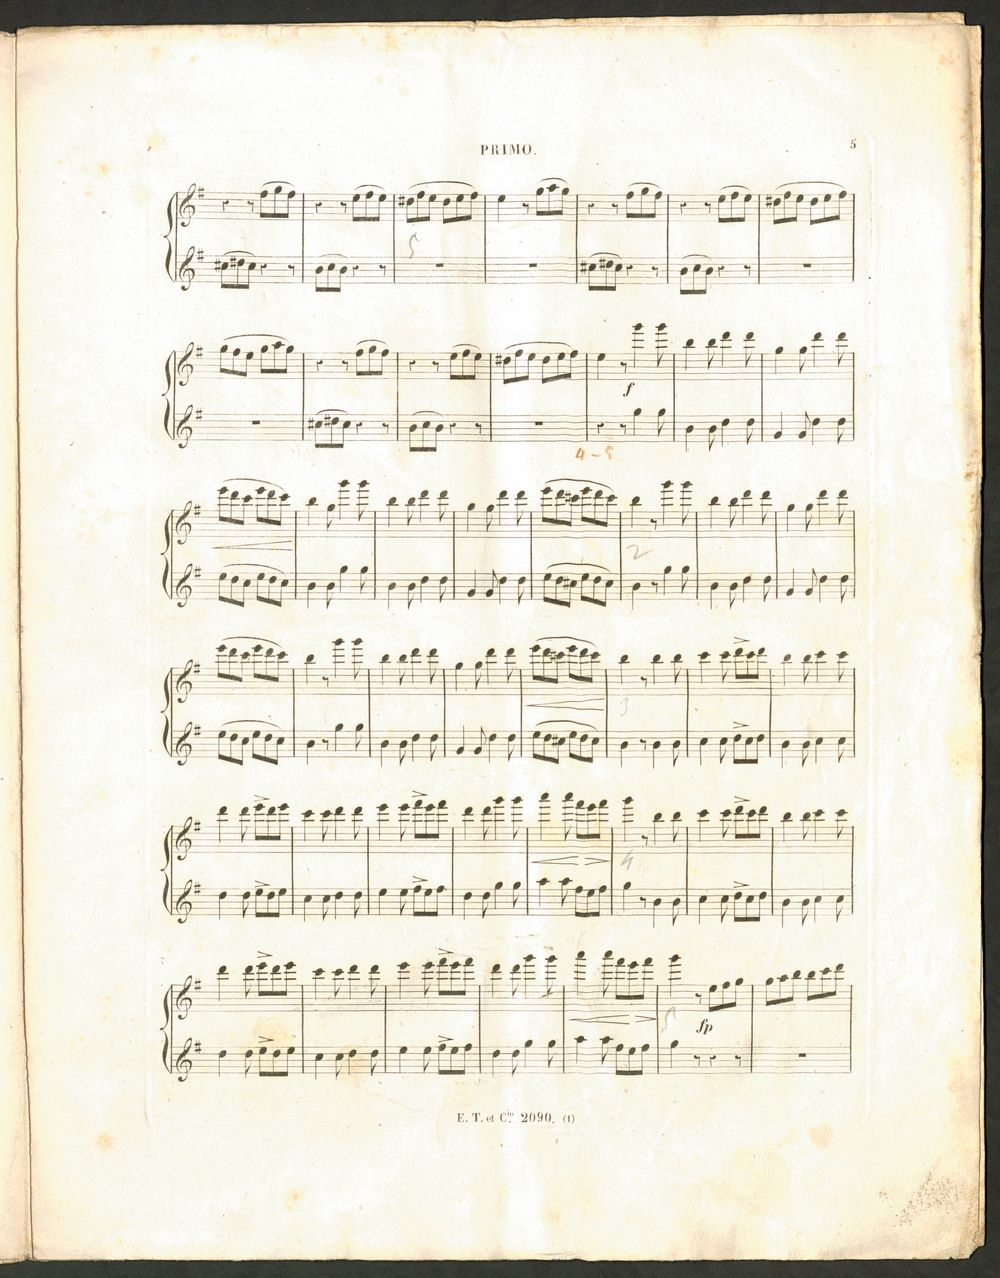 PRIMO.
5
5
f
4-5
2
3
4
5
fp
E. T. et Cie. 2090. (1)